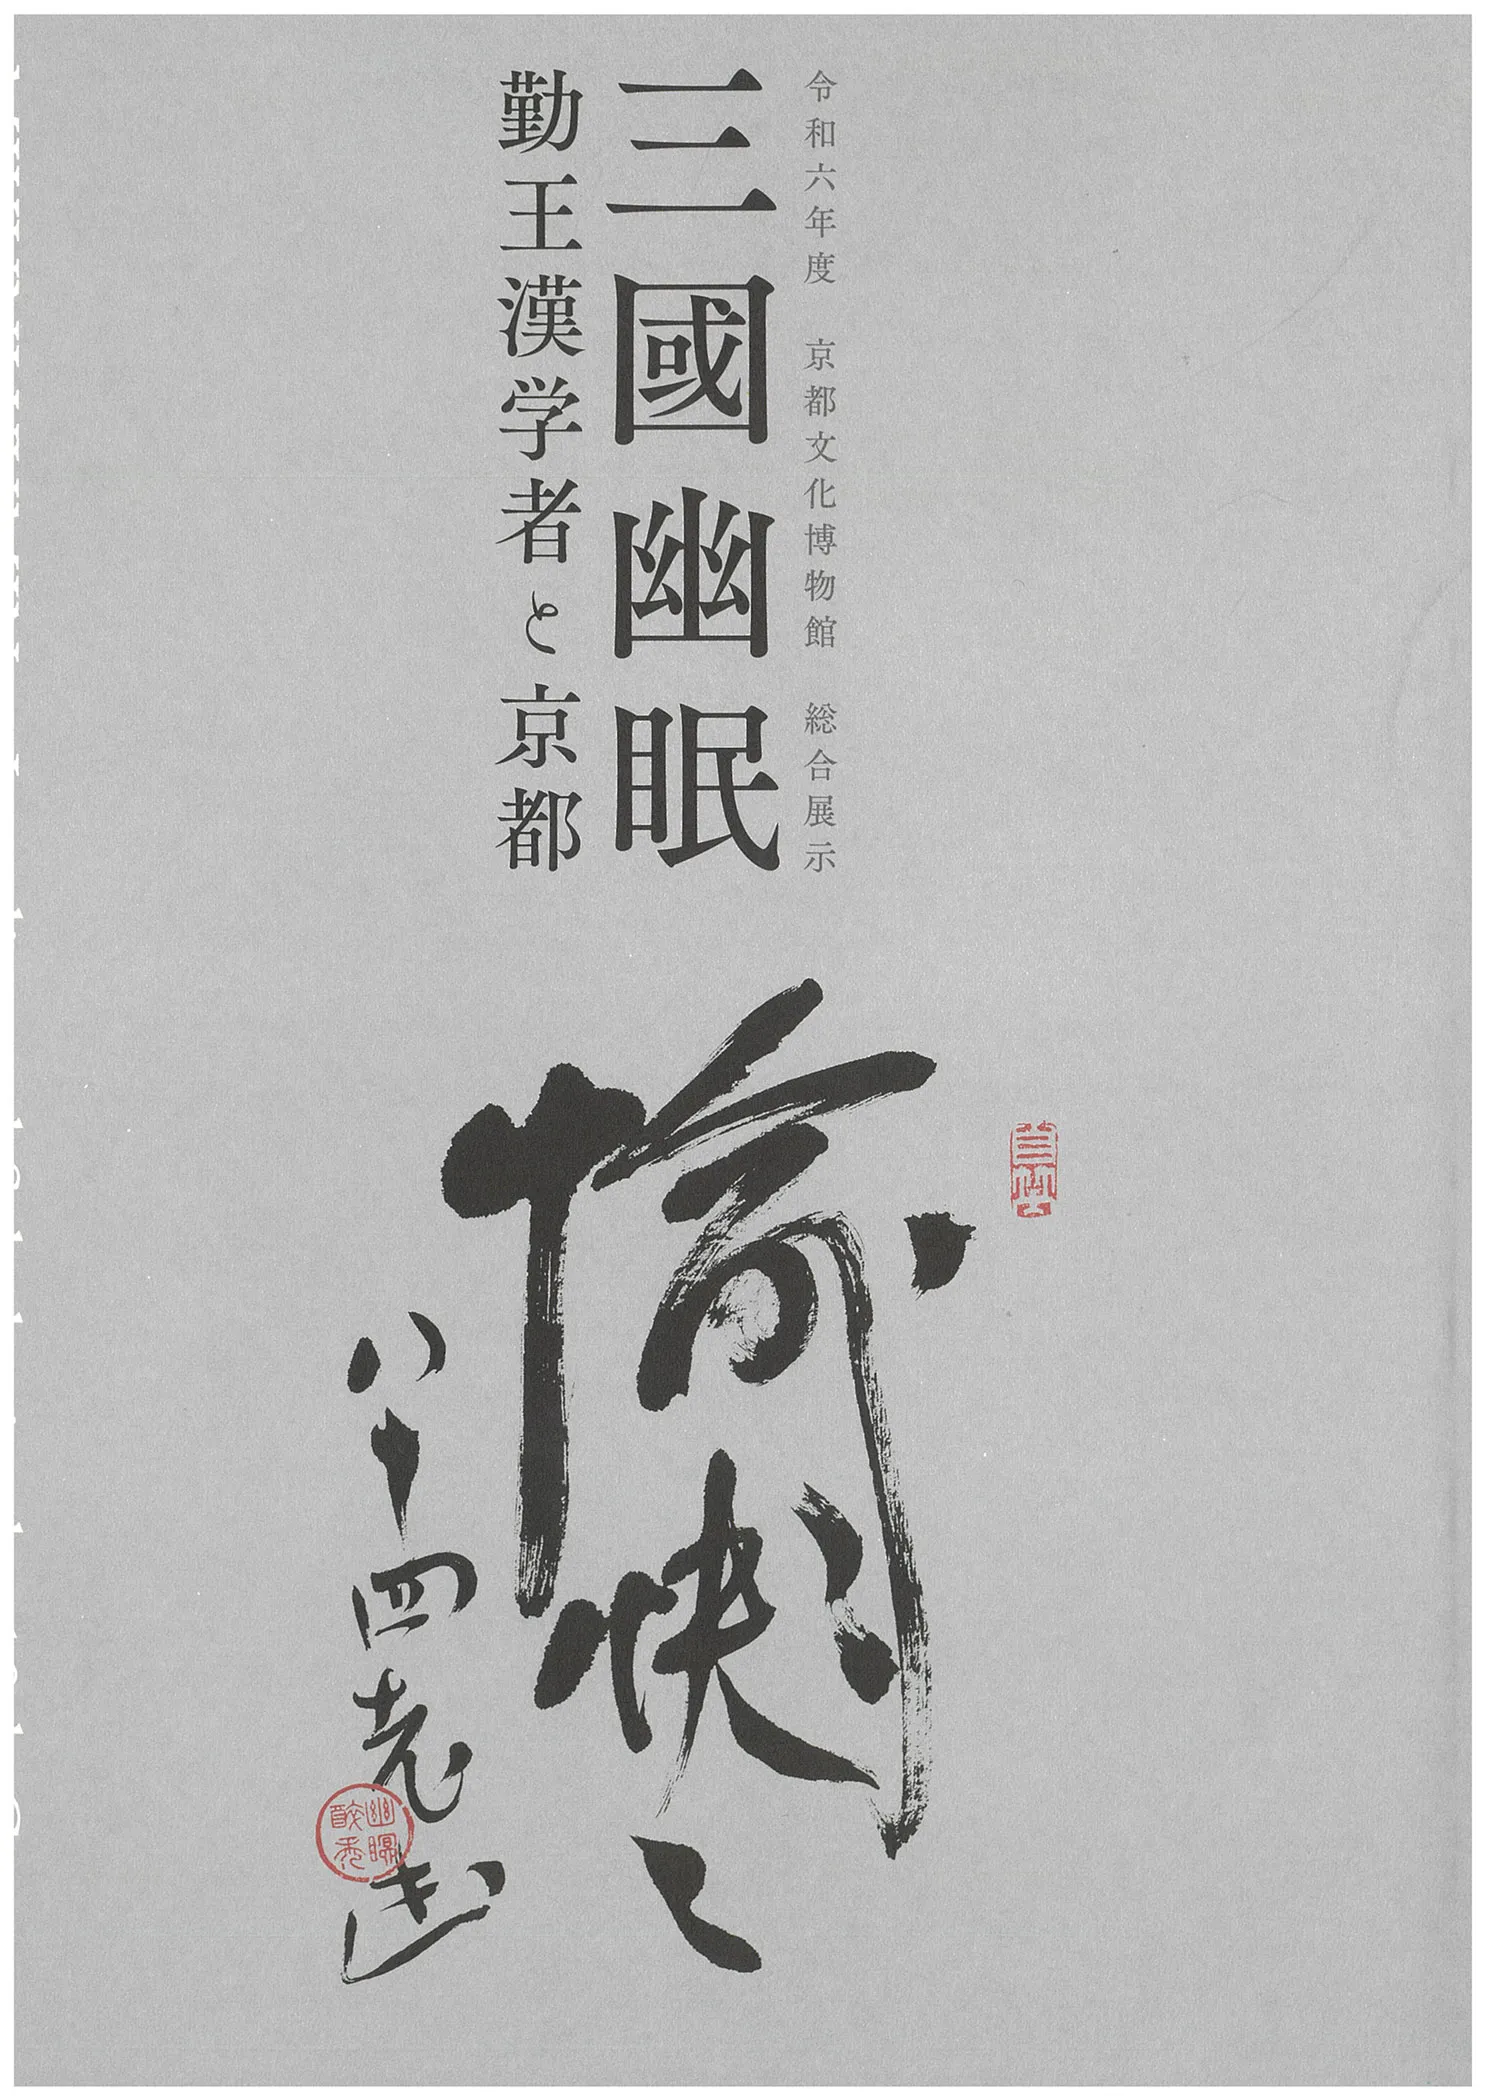 令和六年度 京都文化博物館 総合展示
三國幽眠
勤王漢学者と京都
愉快々
八十四老